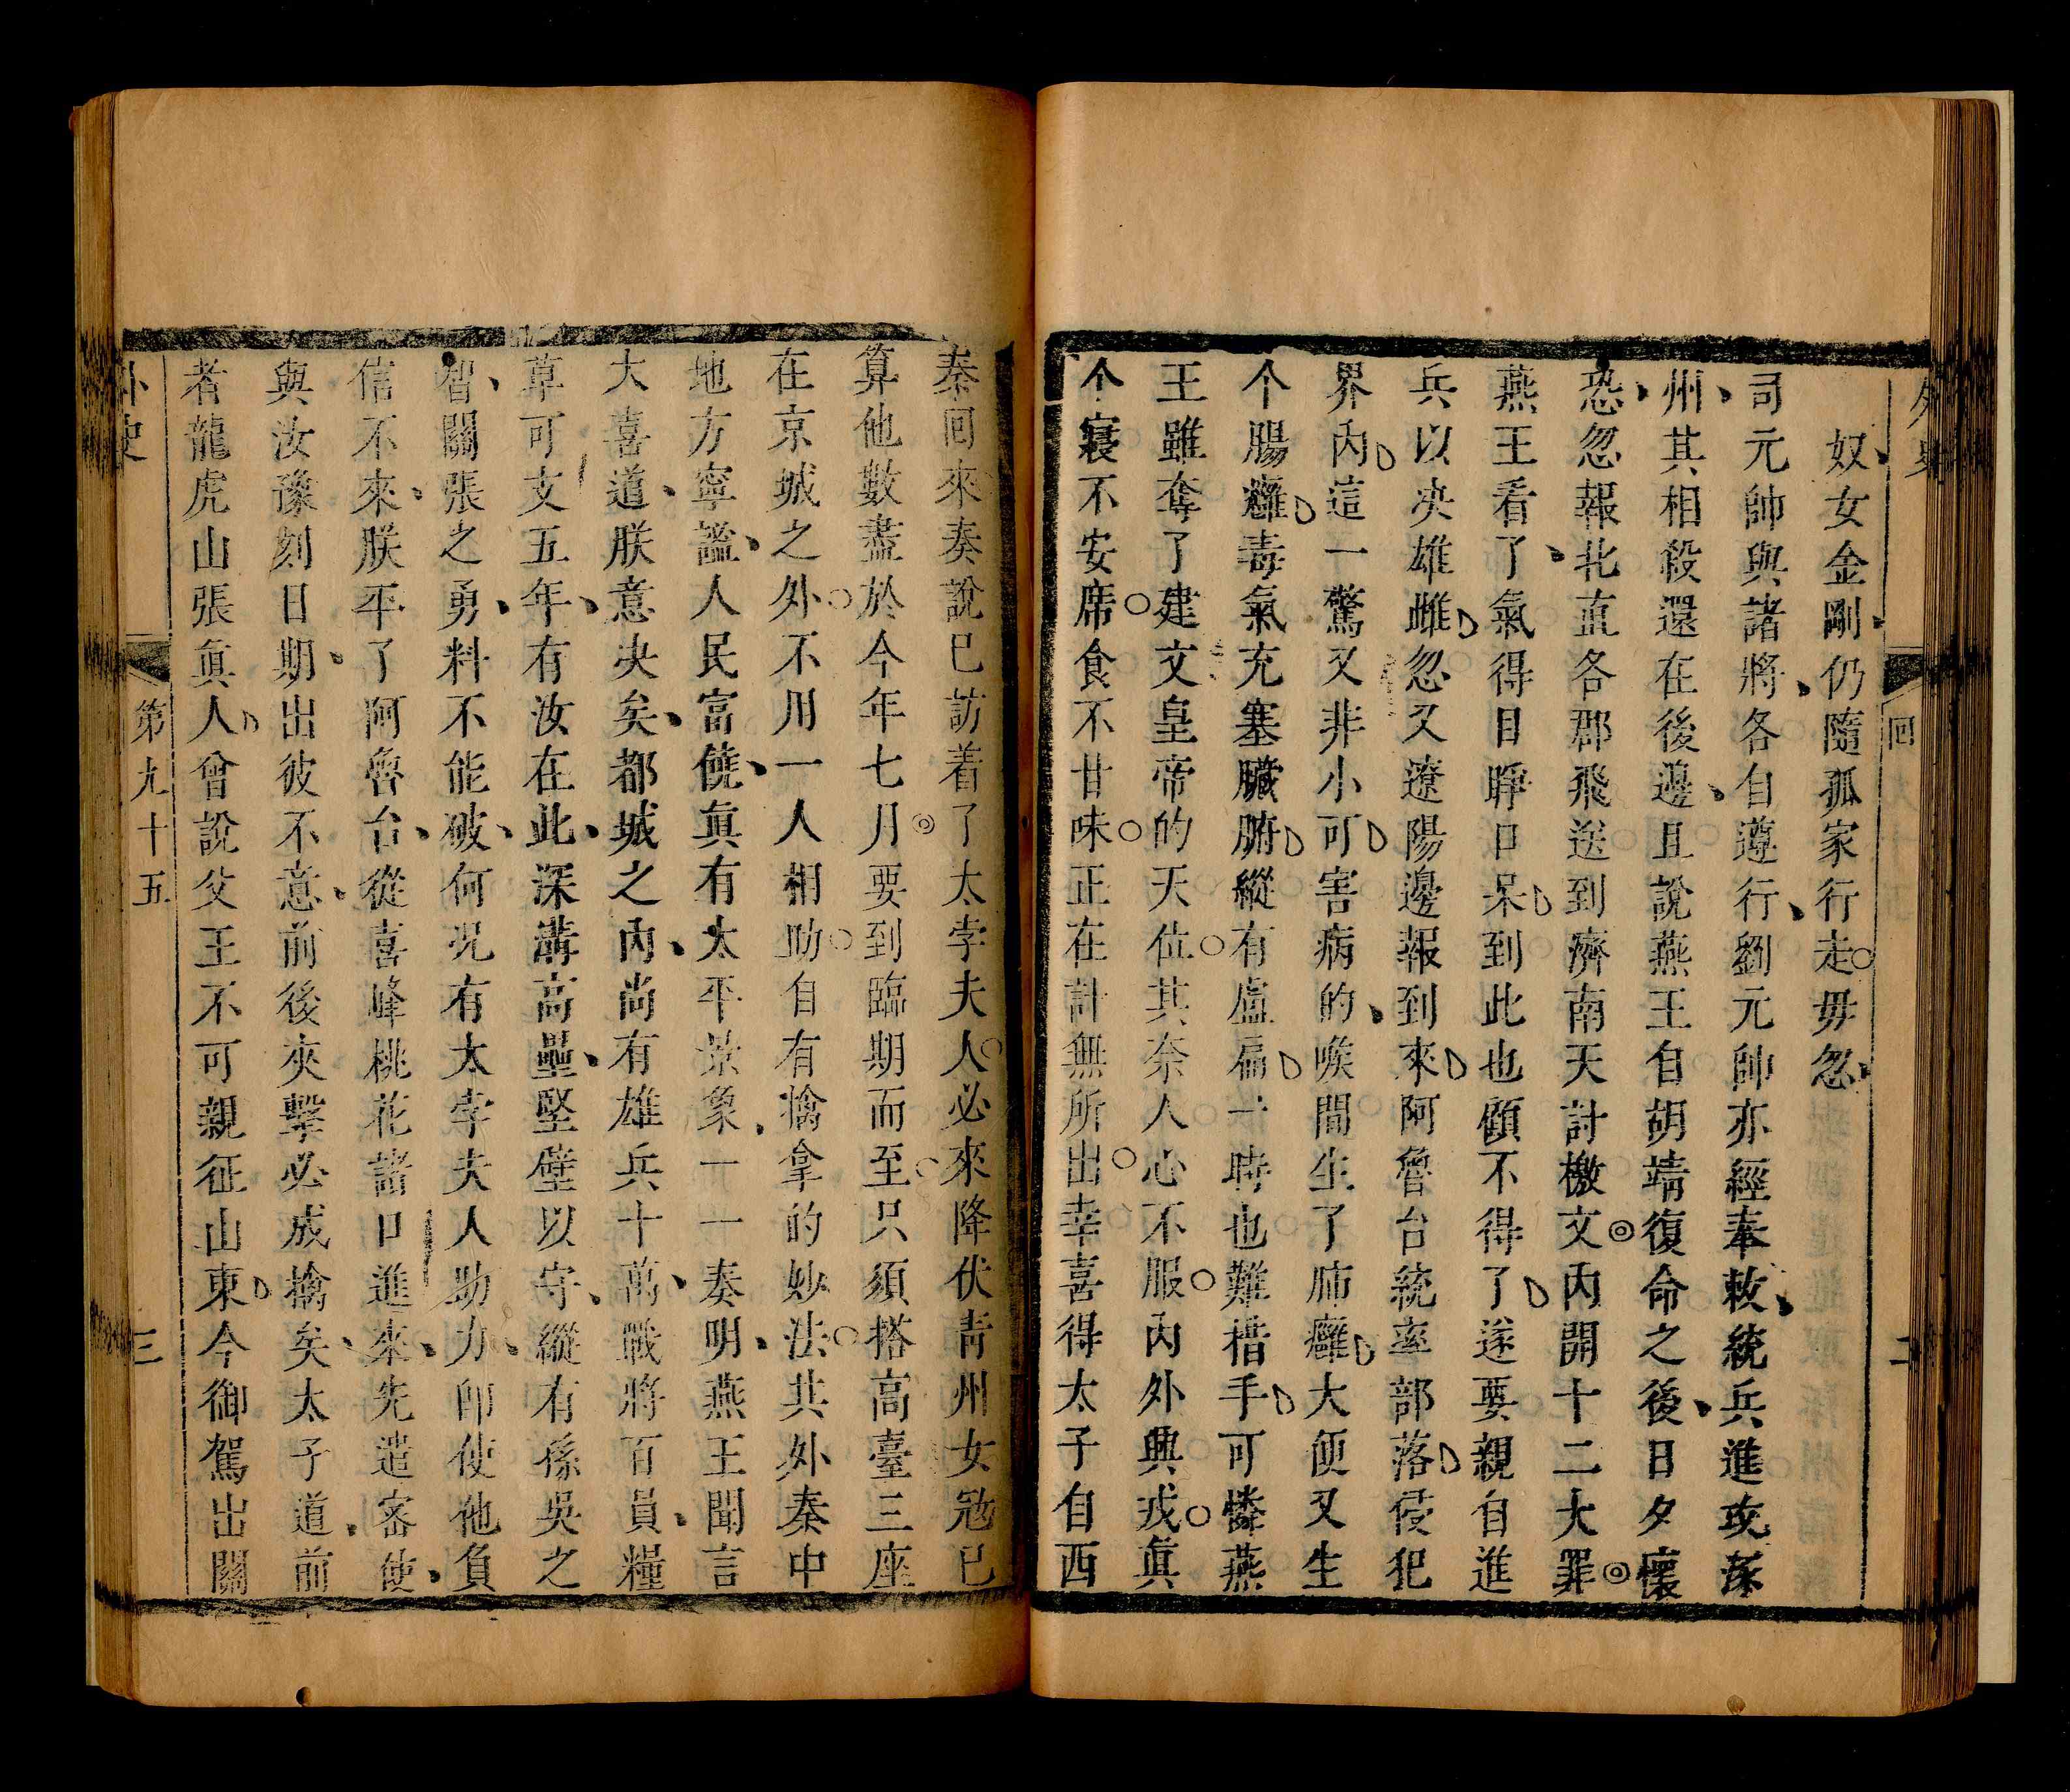 外史
回
二
奴女金剛仍隨孤家行走毋忽
司元帥與諸將各自遵行劉元帥亦經奉敕統兵進攻涿
州其相殺還在後邊且說燕王自胡靖復命之後日夕懷
恐忽報北直各郡飛送到濟南天討檄文內開十二大罪
燕王看了氣得目睜口呆到此也顧不得了遂要親自進
兵以决雄雌忽又遼陽邊報到來阿魯台統率部落侵犯
界內這一驚又非小可害病的喉間生了肺癰大便又生
个腸癰毒氣充塞臟腑縱有盧扁一時也難措手可憐燕
王雖奪了建文皇帝的天位其奈人心不服內外興戎真
个寢不安席食不甘味正在計無所出幸喜得太子自西
秦回來奏說已訪着了太孛夫人必來降伏青州女宼已
算他數盡於今年七月要到臨期而至只須搭高臺三座
在京城之外不用一人相助自有擒拿的妙法共外秦中
地方寧謐人民富饒真有太平景象一一奏明燕王聞言
大喜道朕意决矣都城之內尚有雄兵十萬戰將百員糧
草可支五年有汝在此深溝高壘堅壁以守縱有孫吳之
智關張之勇料不能破何况有太孛夫人助力即使他負
信不來朕平了阿魯台從喜峰桃花諸口進來先遣密使
與汝豫刻日期出彼不意前後夾擊必成擒矣太子道前
者龍虎山張真人曾說父王不可親征山東今御駕出關
外史
第九十五
三